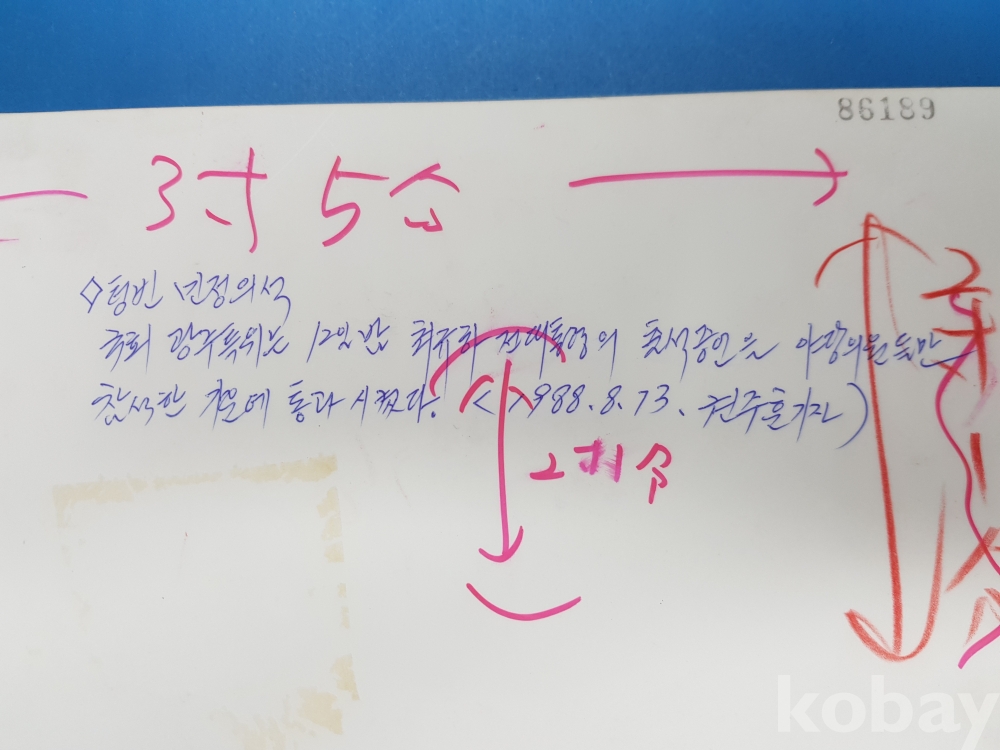 86189
3寸 5分
◇텅빈 민정의석
국회 광주특위는 12일 밤 최규하 전대통령의 출석증언을 야당의원들만
참석한 가운데 통과시켰다. (1988.8.13. 전주훈기자)
2寸
kobay